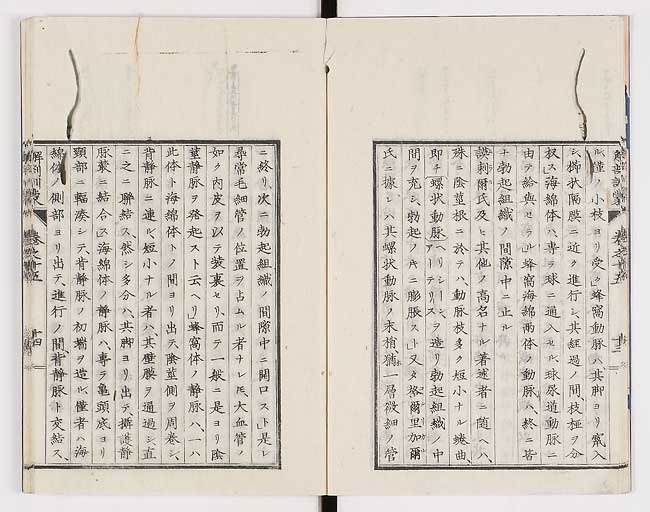 ル僅ノ小枝ヨリ受ク蜂窩動脈ハ其脚ヨリ竄入
シ櫛状隔膜ニ近ク進行シ其経過ノ間枝極ヲ分
ス海綿体ハ専ラ球ニ通入セル球尿道動脈ニ
由テ給與セラル蜂窩海綿両体ノ動脈ハ終ニ皆
ナ勃起組織ノ間隙中ニ止ル
謨刺爾氏及ヒ其他ノ高名ナル著述者ニ随ヘハ
殊ニ陰茎根ニ於テハ動脈枝多ク短小ナル捲曲
即チ螺状動脈ヘリシーン、アーテリースヲ造リ勃起組織ノ中
間ヲ充シ勃起ノ時ニ膨脹スト又タ格爾里加爾
氏ニ據レハ其螺状動脈ノ末梢猶ホ一層微細ノ管
解剖訓蒙
巻之十五
十三
ニ終リ次ニ勃起組織ノ間隙中ニ開口スト是レ
尋常毛細管ノ位置ヲ占ムル者ナレ𪜈大血管ノ
如ク内皮ヲ以テ装裏セリ而テ一般ニ是ヨリ陰
茎静脈ヲ発起スト云ヘリ蜂窩体ノ静脈ハ一ハ
此体ト海綿体トノ間ヨリ出テ陰茎側ヲ周巻シ
背静脈ニ連ル短小ナル者ハ其壁膜ヲ通過シ直
ニ之ニ聯結ス然シ多分ハ其脚ヨリ出テ摂護静
脈叢ニ結合ス海綿体ノ静脈ハ専ラ亀頭底ヨリ
頸部ニ輻湊シテ背静脈ノ初端ヲ造ル僅者ハ海
綿体ノ側部ヨリ出テ進行ノ間背静脈ト交結ス
解剖訓蒙
巻之十五
十四